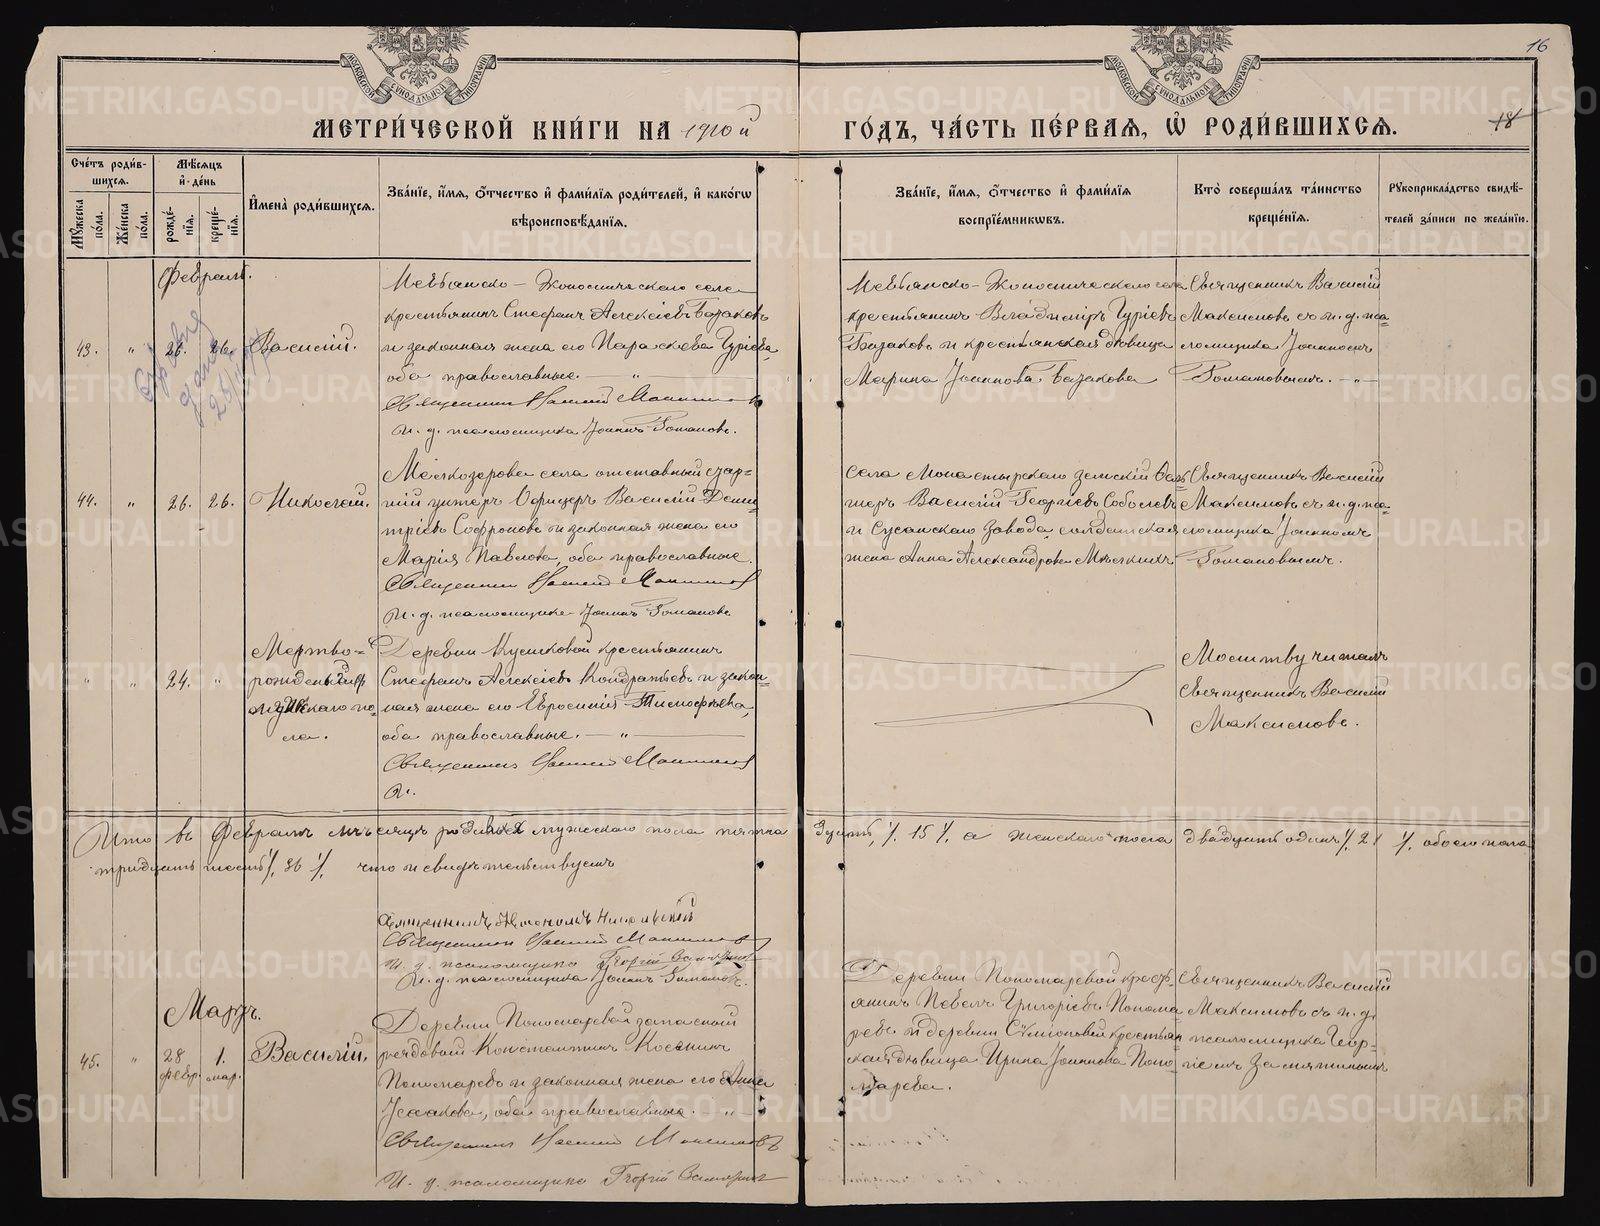 16
18
МОСКОВСКОЙ СѴНОДАЛЬНОЙ ТИПОГРАФІИ
МОСКОВСКОЙ СѴНОДАЛЬНОЙ ТИПОГРАФІИ
МЕТРИ́ЧЕСКОЙ КНИ́ГИ НА 1910й
ГО́ДЪ, ЧА́СТЬ ПЕ́РВАѦ, Ѡ҆ РОДИ́ВШИХСѦ.
Сче́тъ роди́в-
шихсѧ.
Мꙋ́жеска по́ла.
Же́нска по́ла.
Мѣ́сѧцъ
и҆ де́нь
рожде́-
нїѧ.
креще́-
нїѧ.
И҆мена̀ роди́вшихсѧ.
Зва́нїе, и҆́мѧ, ѻ҆́тчество и҆ фами́лїѧ роди́телей, и҆ како́гѡ
вѣроисповѣ́данїѧ.
Зва́нїе, и҆́мѧ, ѻ҆́тчество и҆ фами́лїѧ
воспрїе́мникѡвъ.
Кто̀ соверша́лъ та́инство
креще́нїѧ.
Рꙋкоприкла́дство свидѣ́-
телей за́писи по жела́нїю.
Февраль.
43. " 26. 26. Василій.
Невьянско-Экономическаго села
крестьянинъ Стефанъ Алексіевъ Базаковъ
и законная жена его Параскева Гуріева,
оба православные. — " —
Священникъ Василій Максимовъ
И. д. псаломщика Іоаннъ Романовъ.
Невьянско-Экономическаго села
крестьянинъ Владиміръ Гуріевъ
Базаковъ и крестьянская дѣвица
Марина Іоаннова Базакова
Священникъ Василій
Максимовъ съ и. д. пса-
ломщика Іоанномъ
Романовымъ. — " —
44. " 26. 26. Николай.
села отставный стар-
шій унтеръ Офицеръ Василій Дими-
тріевъ Софроновъ и законная жена его
Марія Павлова, оба православные.
Священникъ Василій Максимовъ
И. д. псаломщика Іоаннъ Романовъ
Села Монастырскаго земскій
Василій Георгіевъ Соболевъ
и Сусанскаго завода, солдатская
жена Анна Александрова Мягкихъ
Священникъ Василій
Максимовъ съ и. д. пса-
ломщика Іоанномъ
Романовымъ.
" " 24. "
Мертво-
рожденный
мужскаго по-
ла.
Деревни Кушковой крестьянинъ
Стефанъ Алексіевъ Кондратьевъ и закон-
ная жена его Евросинія Тимофеева,
оба православные. — " —
Священникъ Василій Максимовъ
И.
Молитву читалъ
Священникъ Василій
Максимовъ.
Итого въ Февралѣ мѣсяцѣ родилось мужескаго пола пятна дцать, /. 15 /. а женскаго пола двадцать одинъ /. 21 /. обоего пола
тридцать шесть /. 36 /. что и свидѣтельствуемъ
Священникъ
Священникъ Василій Максимовъ
И. д. псаломщика Георгій Замятинъ
И. д. псаломщика Іоаннъ Романовъ.
Мартъ.
45. " 28 февр. 1. мар. Василій.
Деревни Пономаревой запасный
рядовый Константинъ Косьминъ
Пономаревъ и законная жена его Анна
Исаакова, оба православные. — " —
Священникъ Василій Максимовъ
И. д. псаломщика Георгій Замятинъ
Деревни Пономаревой кресть-
янинъ Павелъ Григоріевъ Понома-
ревъ и деревни крестьян-
ская дѣвица Ирина Іоаннова Поно-
марева.
Священникъ Василій
Максимовъ съ и. д.
псаломщика Геор-
гіемъ Замятинымъ